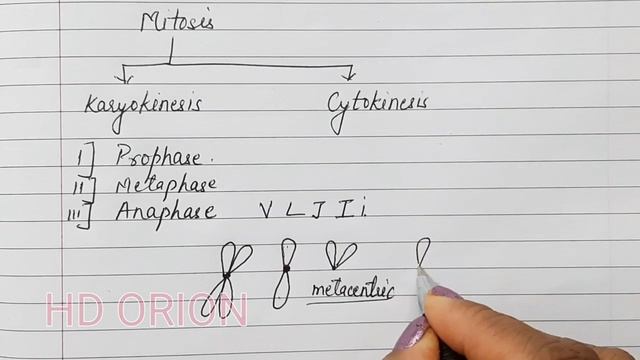 Mitosis
Karyokinesis Cytokinesis
I] Prophase.
II] Metaphase
III] Anaphase V L J I i.
metacentric
HD ORION